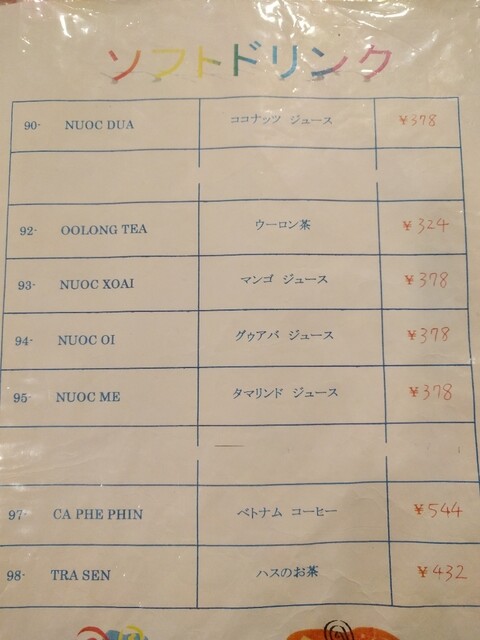 ソフトドリンク
90- NUOC DUA ココナッツ ジュース ¥378
92- OOLONG TEA ウーロン茶 ¥324
93- NUOC XOAI マンゴ ジュース ¥378
94- NUOC OI グゥアバ ジュース ¥378
95- NUOC ME タマリンド ジュース ¥378
97- CA PHE PHIN ベトナム コーヒー ¥544
98- TRA SEN ハスのお茶 ¥432